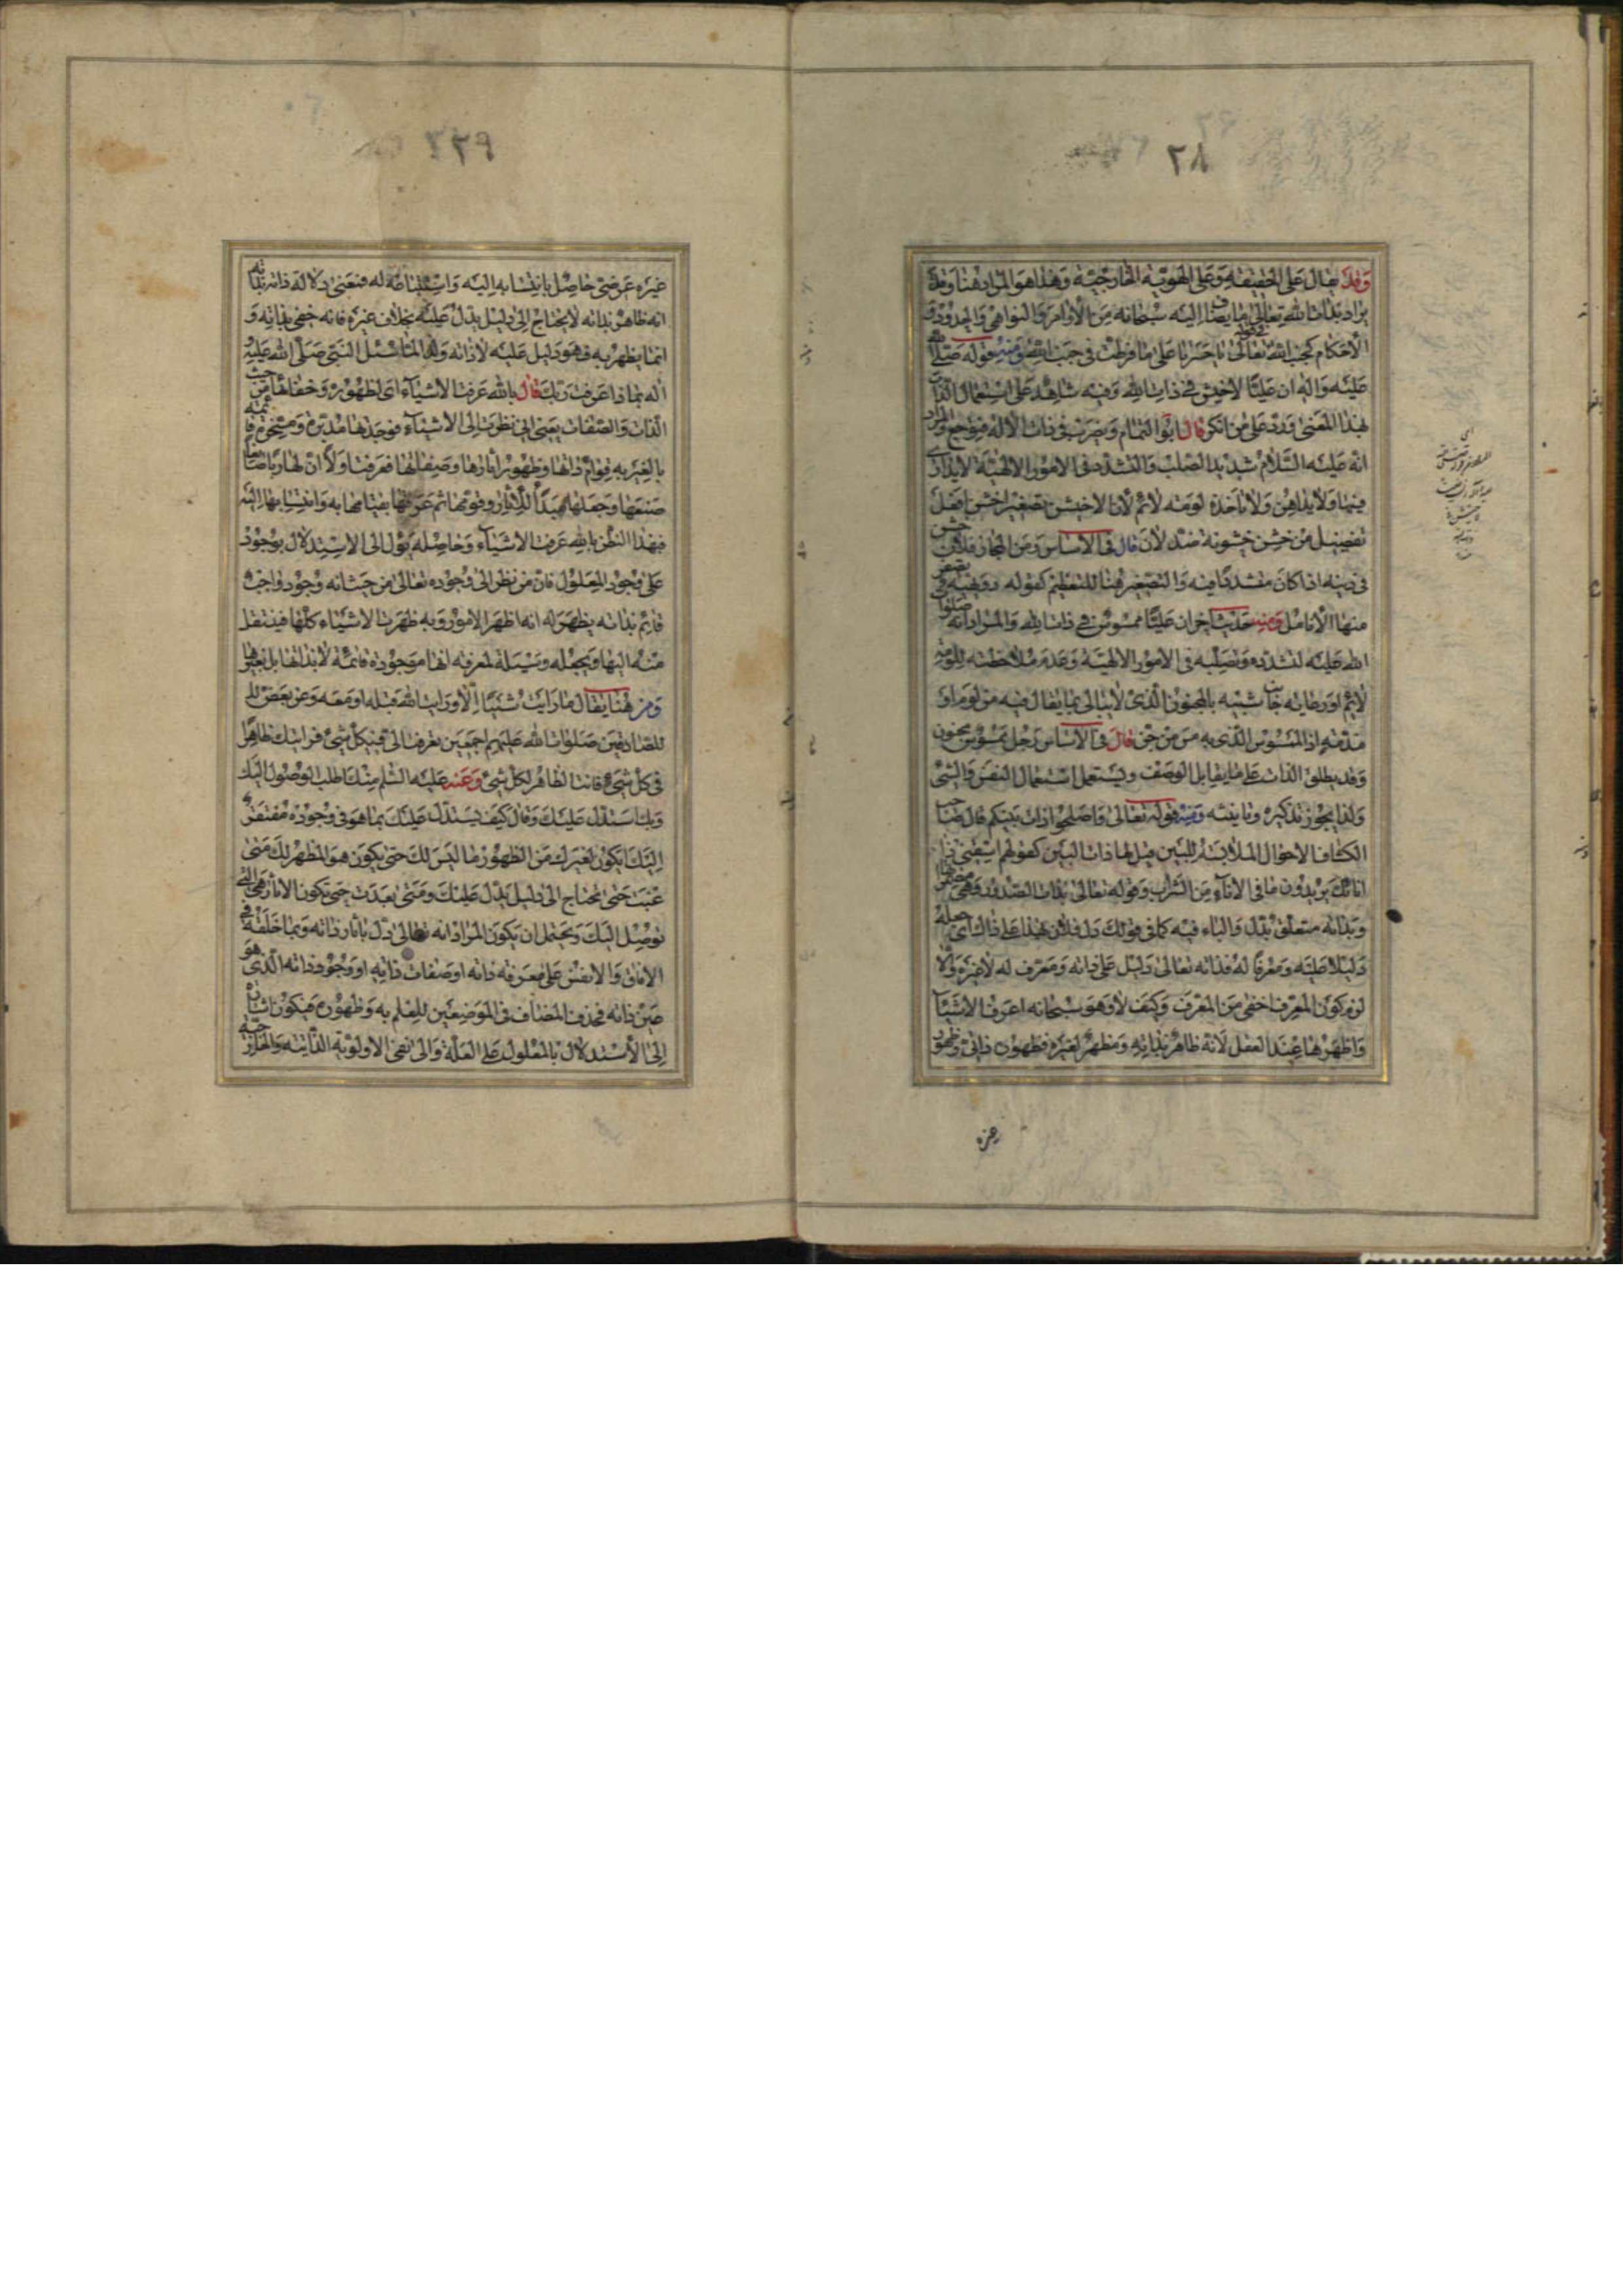 ٢٨
وقد يقال على الحقيقة وعلى الهوية الخارجية وهذا هو المراد هنا وقد
يراد بذات الله تعالى ما يضاف اليه سبحانه من الأوامر والنواهي والحدود و
الأحكام كجنب الله تعالى في قوله تعالى يا حسرتا على ما فرطت في جنب الله ومنه قوله صلى الله
عليه واله ان عليا لاخيشن في ذات الله وفيه شاهد على استعمال الذات
بهذا المعنى ورد على من انكر قال ابو التمام ويضرب في ذات الاله فيوجع والمراد
انه عليه السلام شديد الصلب والتشدد في الامور الالهية لا يداري
فيها ولا يداهن ولا تأخذه لومة لائم لان الاخيشن تصغير اخشن افعل
تفضيل من خشن خشونة ضد لان قال في الاساس ومن المجاز فلان خشن
في دينه اذا كان متشددا فيه والتصغير هنا للتعظيم كقوله دويهية تصفر
منها الأنامل ومنه حديث اخر ان عليا ممسوس في ذات الله والمراد انه صلوات
الله عليه لتشدده وتصلبه في الامور الالهية وعدم ملاحظته للومة
لائم اورعاية جانب شبيه بالمجنون الذي لا يبالي بما يقال فيه من لوم او
مذمة اذ الممسوس الذي به مس من جن قال في الاساس رجل ممسوس مجنون
وقد يطلق الذات على ما يقابل الوصف ويستعمل استعمال النفس والشيء
ولذا يجوز تذكيره وتانيثه ومنه قوله تعالى واصلحوا ذات بينكم قال صاحب
الكشاف الاحوال الملابسة للبين قيل لها ذات البين كقولهم اسقني ذا
انائك يريدون ما في الأناء من الشراب وقوله تعالى بذات الصدور وهي مضمراتها
وبذاته متعلق بدل والباء فيه كما في قولك دل فلان بهذا على ذلك اي جعله
دليلا عليه ومعرفا له فذاته تعالى دليل على ذاته ومعرف له لا غيره والا
لزم كون المعرف اخفى من المعرف وكيف لا وهو سبحانه اعرف الاشياء
واظهرها عند العقل لانه ظاهر بذاته ومظهر لغيره فظهوره ذاتي وظهور
غيره
٢٩
غيره عرضي حاصل بانتسابه اليه واستنباطه له فمعنى دلالة ذاته بذاته
انه ظاهر بذاته لا يحتاج الى دليل يدل عليه بخلاف غيره فانه خفي بذاته و
انما يظهر به فهو دليل عليه لا ذاته ولذا لما سئل النبي صلى الله عليه
اله بماذا عرفت ربك قال بالله عرفت الاشياء اي لظهوره وخفائها من حيث
الذات والصفات يعني اني نظرت الى الاشياء فوجدتها مدبرة ومسخرة قائمة
بالغير به قوام ذاتها وظهور اثارها وصفاتها فعرفت اولا ان لها ربا صانعا
صنعها وجعلها مبدأ للاثار وقومها ثم عرفتها بقيامها به وانتسابها اليه
فبهذا النظر بالله عرفت الاشياء وحاصله يؤل الى الاستدلال بوجود
على وجود المعلول فان من نظر الى وجوده تعالى من حيث انه وجود واجب
قائم بذاته يظهر له انه اظهر الامور وبه ظهرت الاشياء كلها فينتقل
منه اليها ويجعله وسيلة لمعرفة انها موجودة قائمة لا بذاتها بل بغيرها
ومن هنا يقال ما رايت شيئا الا ورايت الله قبله او معه وعن بعض
الصادقين صلوات الله عليهم اجمعين تعرفت الي في كل شيء فرايتك ظاهرا
في كل شيء فانت الظاهر لكل شيء وعنه عليه السلم منك اطلب الوصول اليك
وبك استدل عليك وقال كيف يستدل عليك بما هو في وجوده مفتقر
اليك ايكون لغيرك من الظهور ما ليس لك حتى يكون هو المظهر لك متى
غبت حتى تحتاج الى دليل يدل عليك ومتى بعدت حتى تكون الاثار هي التي
توصل اليك ويحتمل ان يكون المراد انه تعالى دل باثار ذاته وبما خلقه في
الافاق والانفس على معرفة ذاته او صفات ذاته او وجود ذاته الذي هو
عين ذاته فحذف المضاف في الموضعين للعلم به وظهوره فيكون
الى الأستدلال بالمعلول على العلة والى نفي الاولوية الذاتية والخارجية